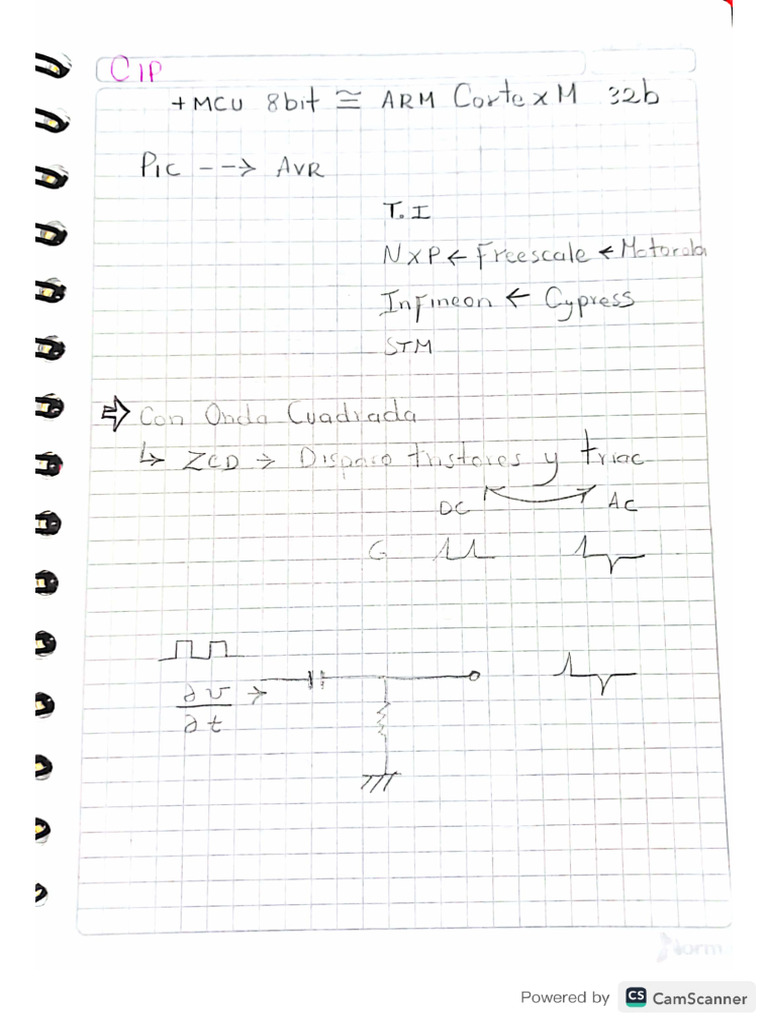 CIP
+ MCU 8bit ≅ ARM Cortex M 32b
PIC --> AVR
T.I
NXP ← Freescale ← Motorola
Infineon ← Cypress
STM
⇒ Con Onda Cuadrada
↳ ZCD → Disparo tristores y triac
DC AC
G
∂v →
∂t
Norm
Powered by CS CamScanner